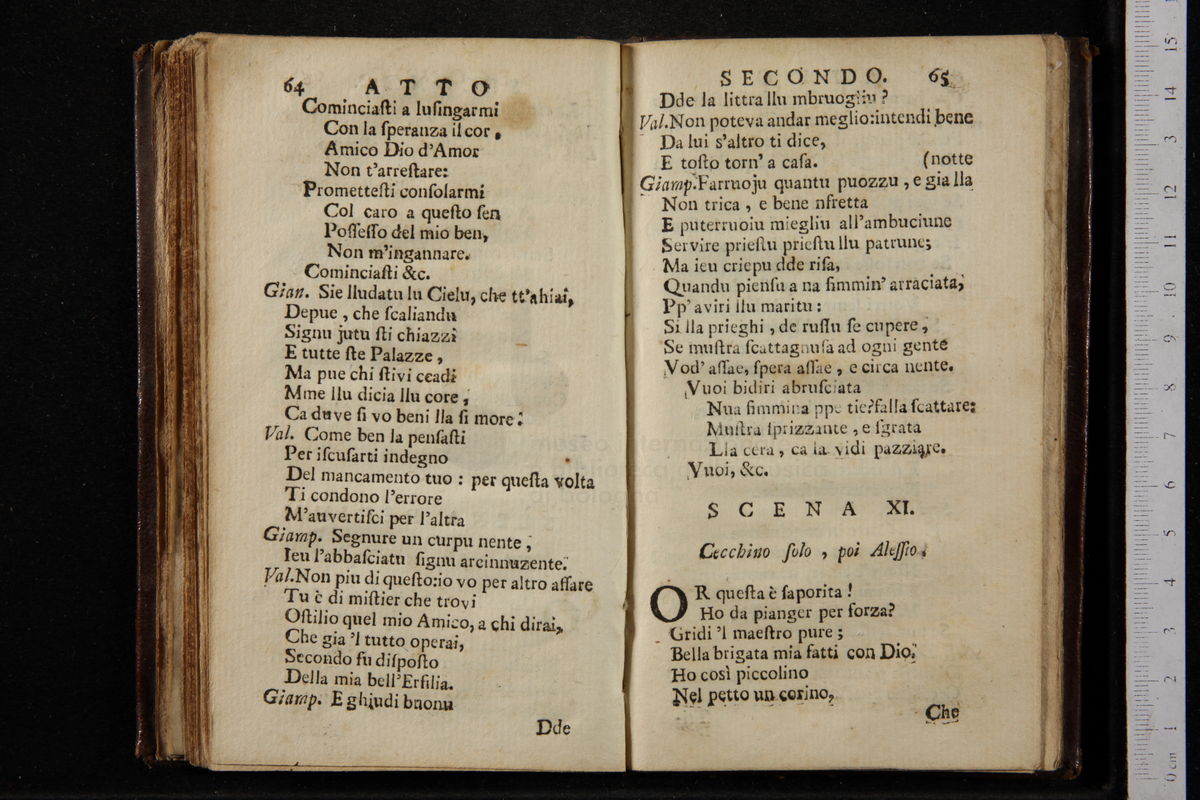 64 ATTO
Cominciaſti a luſingarmi
Con la ſperanza il cor,
Amico Dio d'Amor
Non t'arreſtare:
Promettefti conſolarmi
Col caro a queſto ſen
Poſſeſſo del mio ben,
Non m'ingannare.
Cominciaſti &c.
Gian. Sie lludatu lu Cielu, che tt'ahiai,
Depue, che ſcaliandu
Signu jutu ſti chiazzi
E tutte ſte Palazze,
Ma pue chi ſtivi ccadi
Mme llu dicia llu core,
Ca duve ſi vo beni lla ſi more:
Val. Come ben la penſaſti
Per iſcuſarti indegno
Del mancamento tuo: per queſta volta
Ti condono l'errore
M'auvertiſci per l'altra
Giamp. Segnure un curpu nente,
Ieu l'abbaſciatu ſignu arcinnuzente.
Val. Non piu di queſto: io vo per altro affare
Tu è di miſtier che trovi
Oſtilio quel mio Amico, a chi dirai,
Che gia 'l tutto operai,
Secondo fu diſpoſto
Della mia bell'Erſilia.
Giamp. E ghiudi buonu
Dde
SECONDO. 65
Dde la littra llu mbruogliu?
Val. Non poteva andar meglio: intendi bene
Da lui s'altro ti dice,
E toſto torn' a caſa. (notte
Giamp. Farruoju quantu puozzu, e gia lla
Non trica, e bene nfretta
E puterruoiu miegliu all'ambuciune
Servire prieſtu prieſtu llu patrune;
Ma ieu criepu dde riſa,
Quandu pienſu a na fimmin' arraciata,
Pp' aviri llu maritu:
Si lla prieghi, de ruſſu ſe cupere,
Se muſtra ſcattagnuſa ad ogni gente
Vod' aſſae, ſpera aſſae, e circa nente.
Vuoi bidiri abruſciata
Nua fimmina ppe tie? falla ſcattare:
Muſtra ſprizzante, e ſgrata
Lla cera, ca la vidi pazziare.
Vuoi, &c.
SCENA XI.
Cecchino ſolo, poi Aleſſio.
OR queſta è ſaporita!
Ho da pianger per forza?
Gridi 'l maeſtro pure;
Bella brigata mia fatti con Dio,
Ho così piccolino
Nel petto un corino,
Che